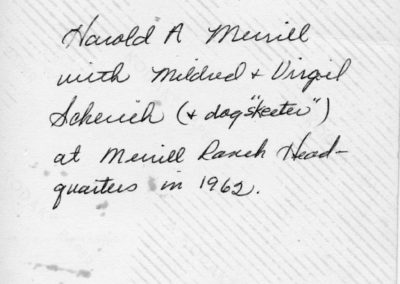 Harold A Merrill
with Mildred + Virgil
Scherich (+ dog "Skeeter")
at Merrill Ranch Head-
quarters in 1962.